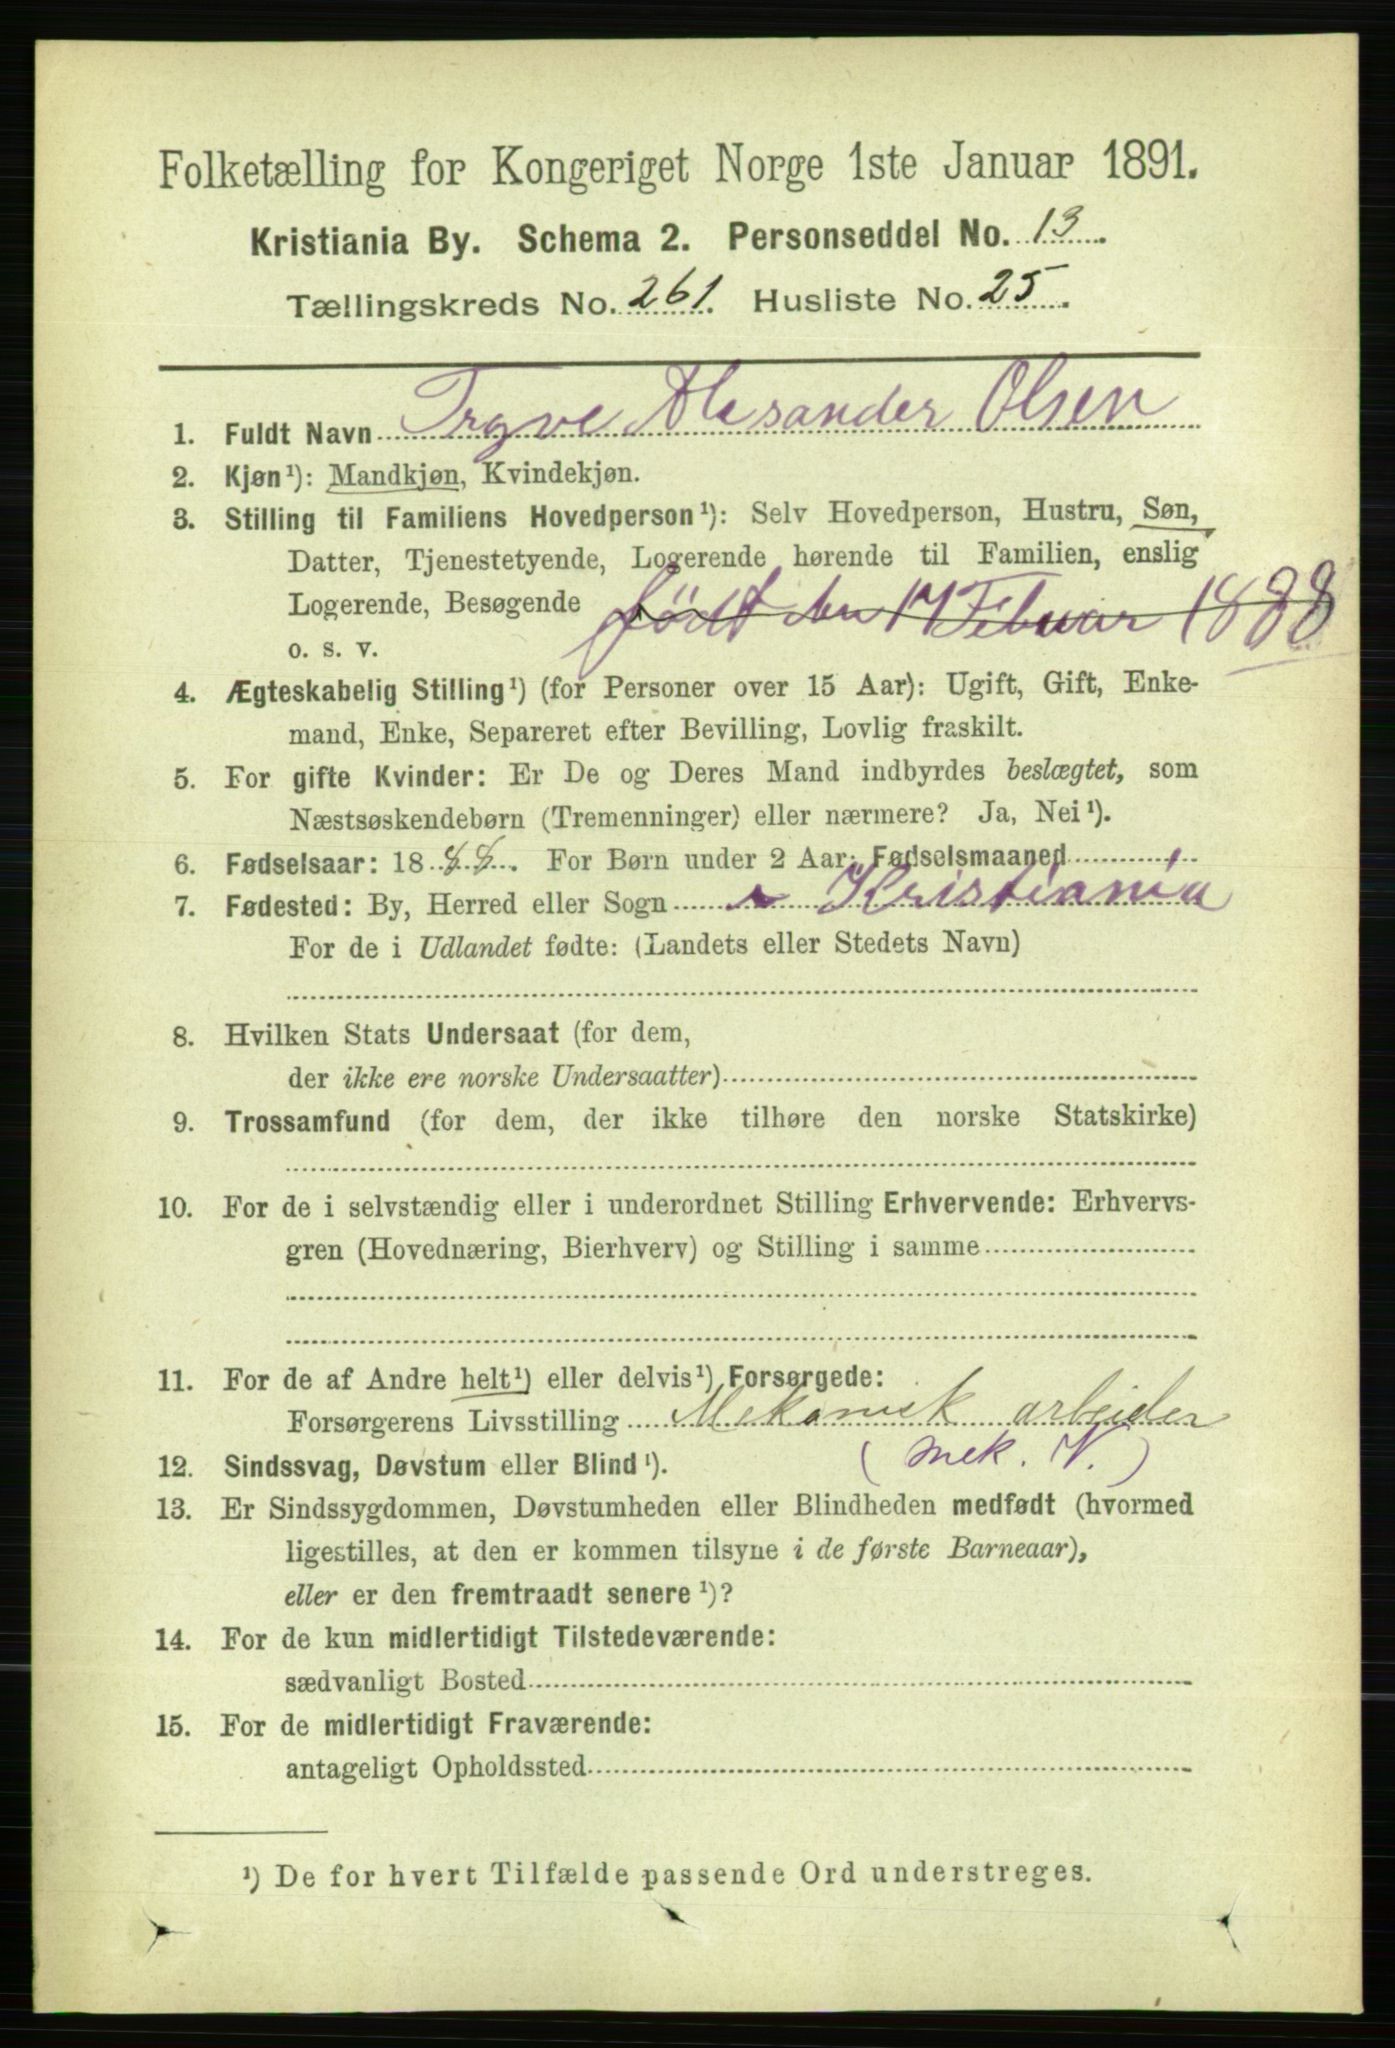 Folketælling for Kongeriget Norge 1ste Januar 1891.
Kristiania By. Schema 2. Personseddel No. 13.
Tællingskreds No. 261. Husliste No. 25.
1. Fuldt Navn Trgve Alexander Olsen
2. Kjøn¹): Mandkjøn, Kvindekjøn.
3. Stilling til Familiens Hovedperson¹): Selv Hovedperson, Hustru, Søn,
Datter, Tjenestetyende, Logerende hørende til Familien, enslig
Logerende, Besøgende født den 17 Februar 1888
o. s. v.
4. Ægteskabelig Stilling¹) (for Personer over 15 Aar): Ugift, Gift, Enke-
mand, Enke, Separeret efter Bevilling, Lovlig fraskilt.
5. For gifte Kvinder: Er De og Deres Mand indbyrdes beslægtet, som
Næstsøskendebørn (Tremenninger) eller nærmere? Ja, Nei¹).
6. Fødselsaar: 1888. For Børn under 2 Aar: Fødselsmaaned
7. Fødested: By, Herred eller Sogn Kristiania
For de i Udlandet fødte: (Landets eller Stedets Navn)
8. Hvilken Stats Undersaat (for dem,
der ikke ere norske Undersaatter)
9. Trossamfund (for dem, der ikke tilhøre den norske Statskirke)
10. For de i selvstændig eller i underordnet Stilling Erhvervende: Erhvervs-
gren (Hovednæring, Bierhverv) og Stilling i samme
11. For de af Andre helt¹) eller delvis¹) Forsørgede:
Forsørgerens Livsstilling Mekanisk arbeider
(mek. V.)
12. Sindssvag, Døvstum eller Blind¹).
13. Er Sindssygdommen, Døvstumheden eller Blindheden medfødt (hvormed
ligestilles, at den er kommen tilsyne i de første Barneaar),
eller er den fremtraadt senere¹)?
14. For de kun midlertidigt Tilstedeværende:
sædvanligt Bosted
15. For de midlertidigt Fraværende:
antageligt Opholdssted
¹) De for hvert Tilfælde passende Ord understreges.